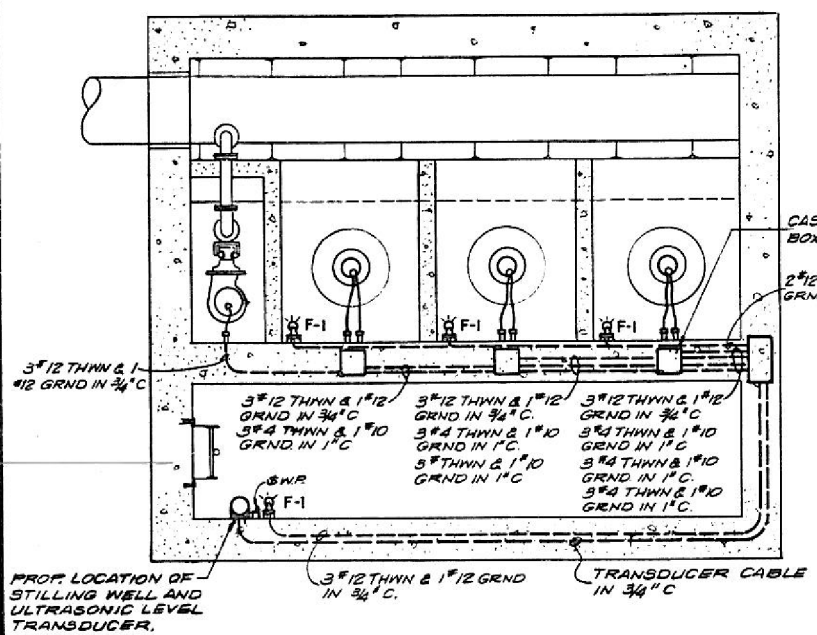 CAS
BOX
F-1
F-1
F-1
2#12
GRND
3#12 THWN & 1
#12 GRND IN 3/4"C
3#12 THWN & 1#12
GRND IN 3/4"C
3#4 THWN & 1#10
GRND IN 1"C
3#12 THWN & 1#12
GRND IN 3/4"C.
3#4 THWN & 1#10
GRND IN 1"C.
3#THWN & 1#10
GRND IN 1"C
3#12 THWN & 1#12
GRND IN 3/4"C
3#4 THWN & 1#10
GRND IN 1"C
3#4 THWN & 1#10
GRND IN 1"C
3#4 THWN & 1#10
GRND IN 1"C.
$W.P.
F-1
PROP. LOCATION OF
STILLING WELL AND
ULTRASONIC LEVEL
TRANSDUCER.
3#12 THWN & 1#12 GRND
IN 3/4"C.
TRANSDUCER CABLE
IN 3/4"C